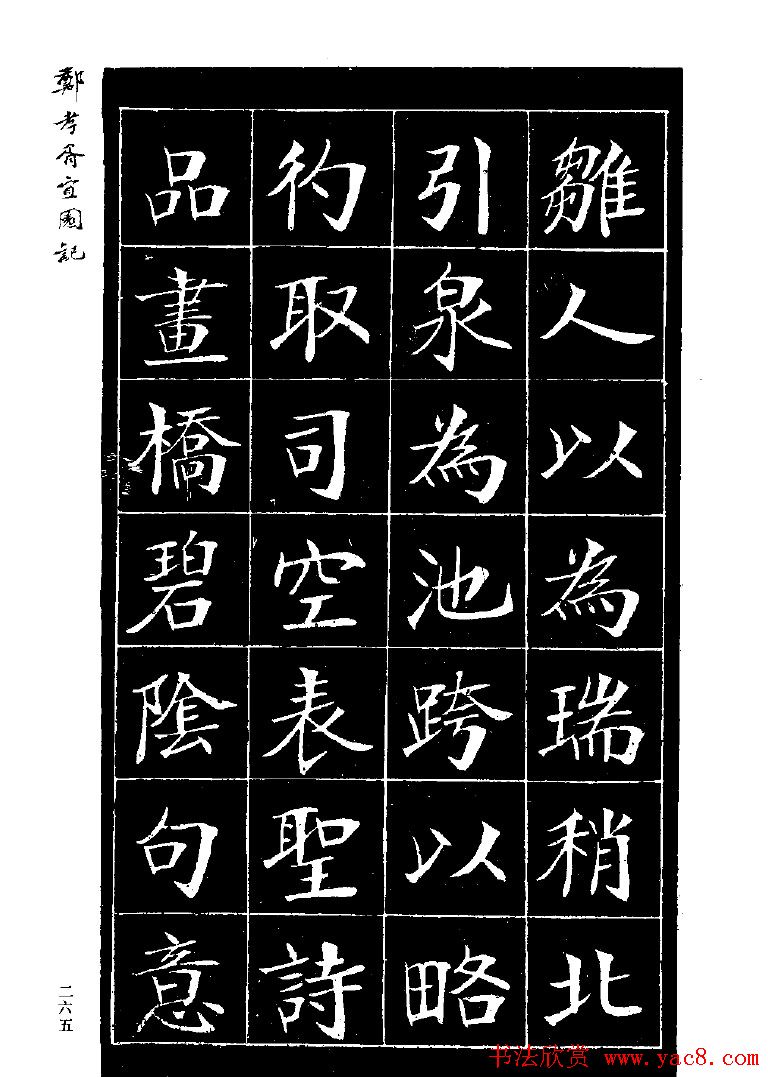 雛人以為瑞稍北
引泉為池跨以略
彴取司空表聖詩
品畫橋碧陰句意
鄭孝胥宜園記
二六五
书法欣赏 www.yac8.com